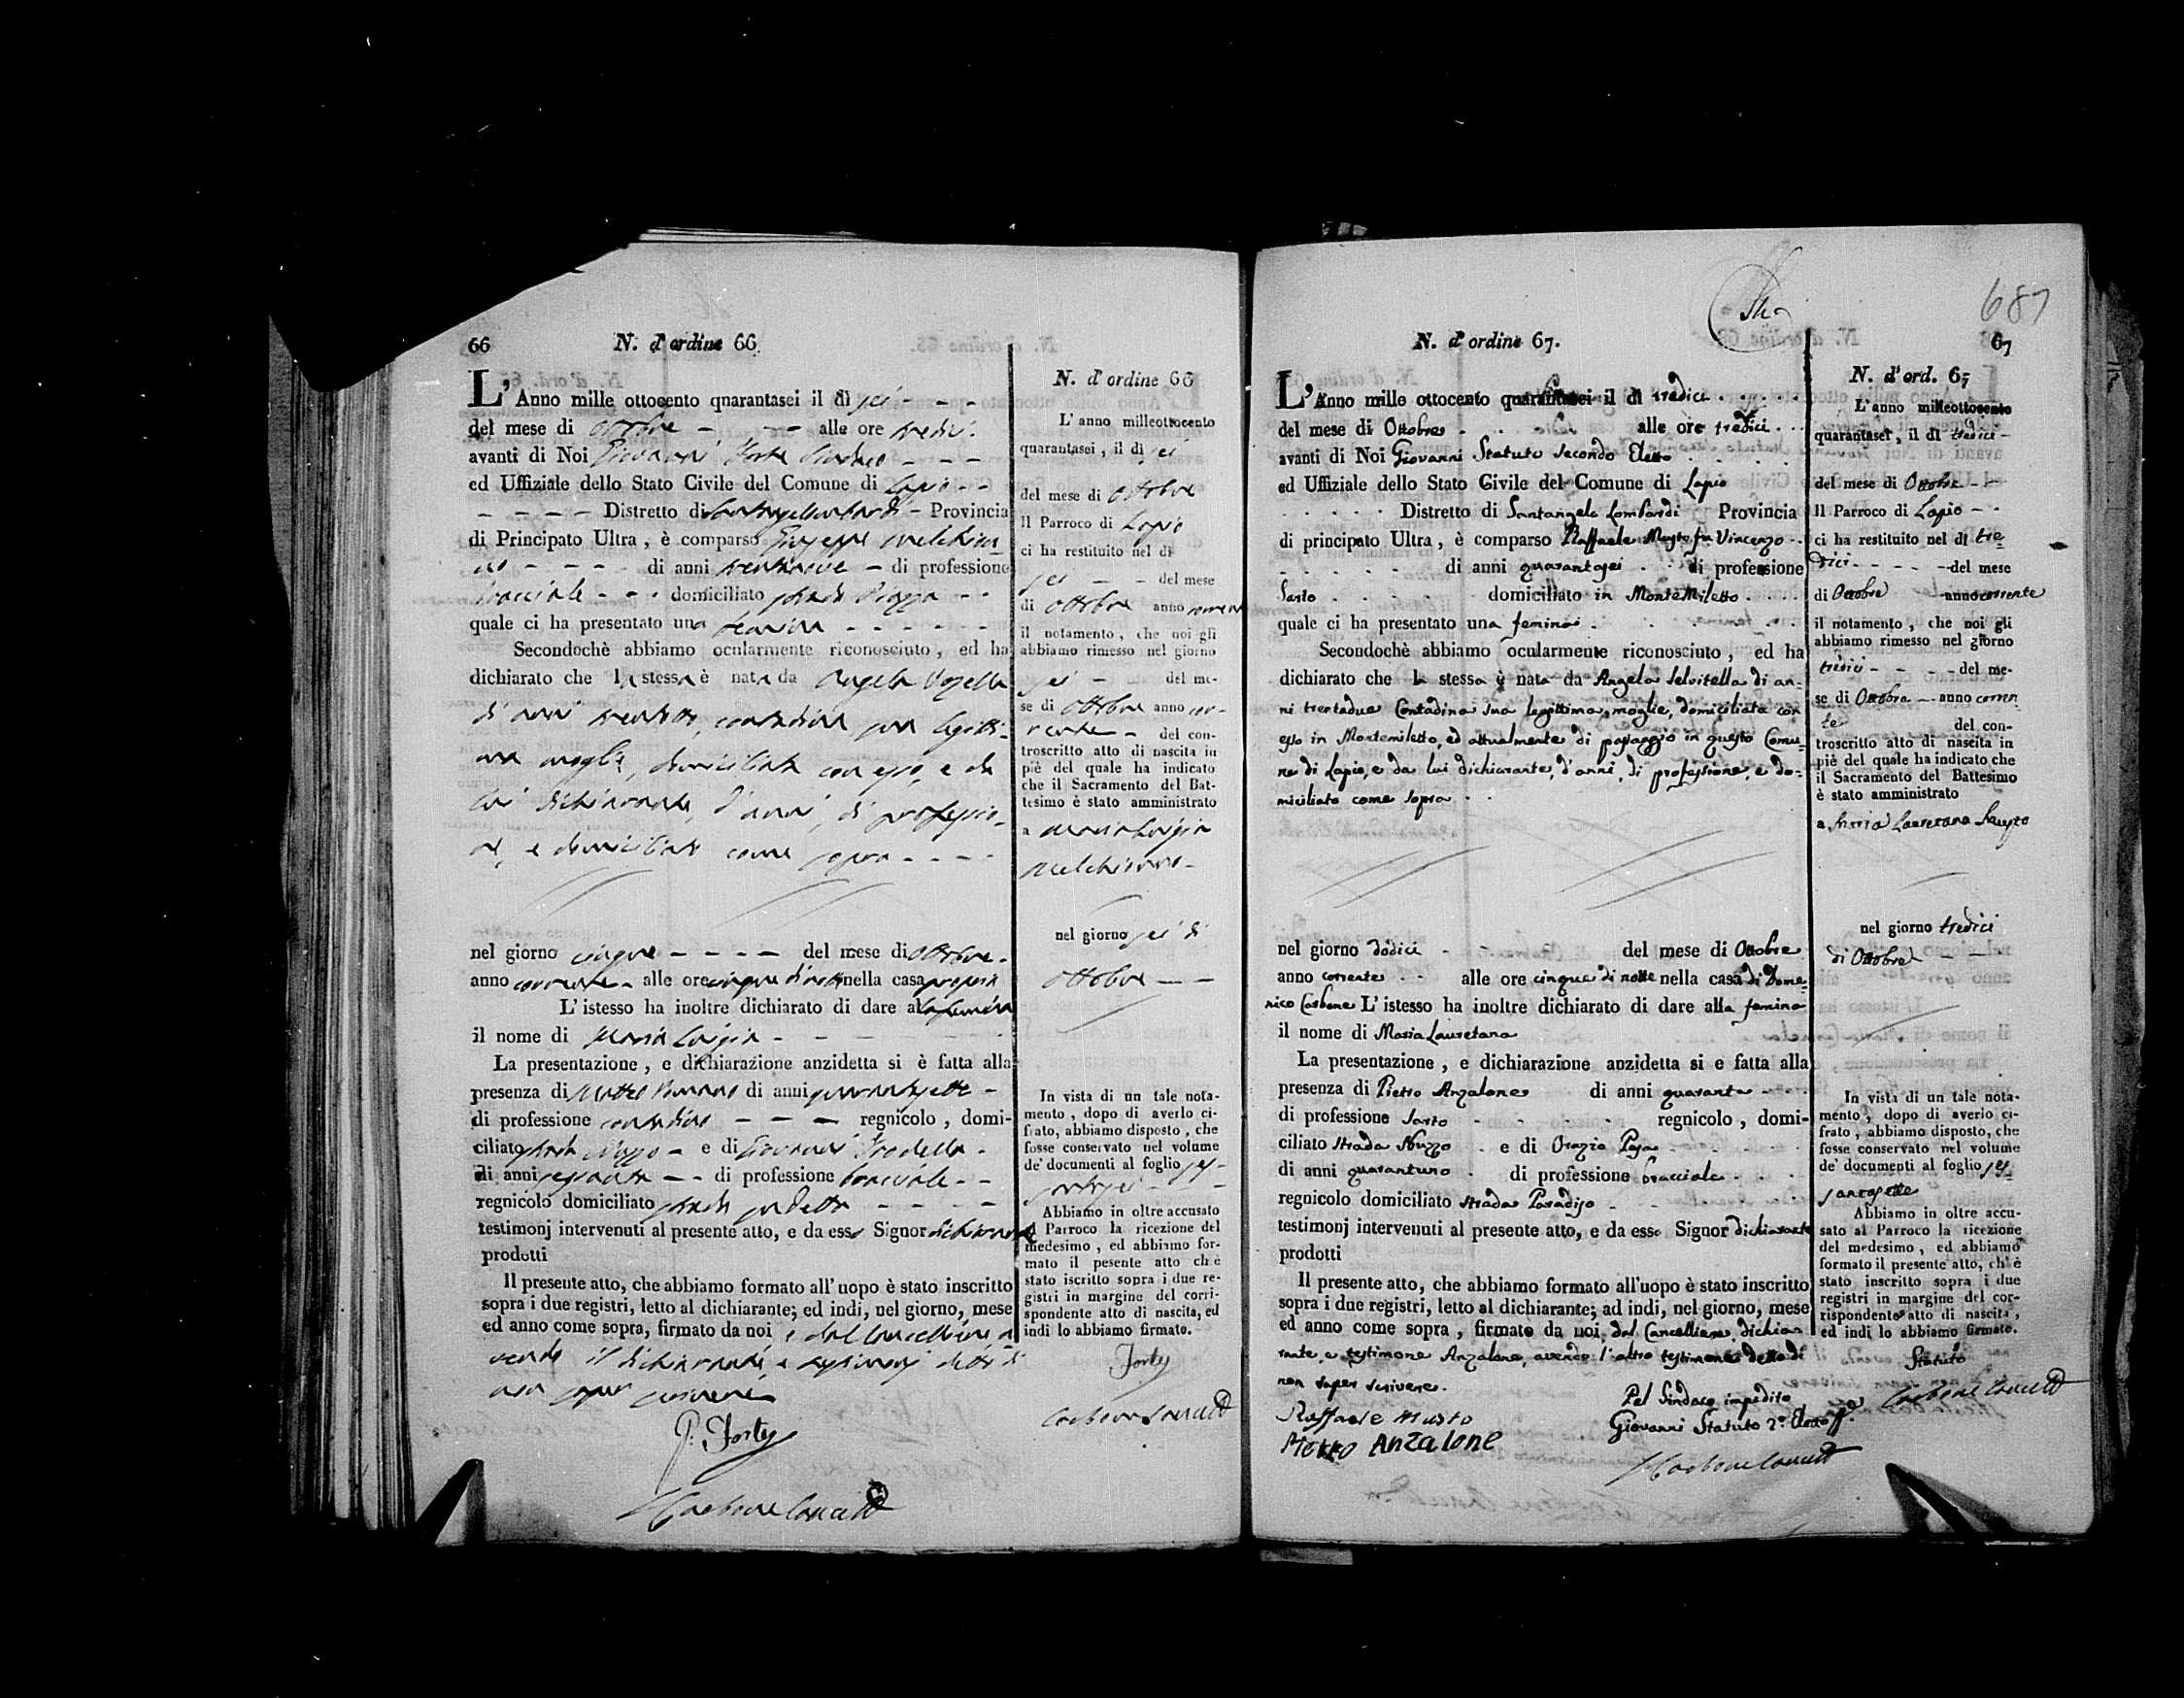 66
N. d'ordine 66.
L'Anno mille ottocento quarantasei il dì sei - - -
del mese di ottobre - - - alle ore tredici.
avanti di Noi Giovanni Forte Sindaco - - -
ed Uffiziale dello Stato Civile del Comune di Lapio - -
- - - - Distretto di Santangelo Lombardi - Provincia
di Principato Ultra, è comparso Giuseppe Melchion-
no - - - - di anni trentanove - di professione
bracciale - - - domiciliato strada Piazza - -
quale ci ha presentato una femina - - - - - -
Secondochè abbiamo ocularmente riconosciuto, ed ha
dichiarato che la stessa è nata da Angela
di anni trentotto, contadina sua legitti-
ma moglie, domiciliata con esso, e da
lui dichiarante, d'anni, di professio-
ne, e domiciliato come sopra - - - -
nel giorno cinque - - - - del mese di ottobre -
anno corrente - alle ore cinque di notte nella casa propria
L'istesso ha inoltre dichiarato di dare alla femina
il nome di Maria Luigia -
La presentazione, e dichiarazione anzidetta si è fatta alla
presenza di Matteo Romano di anni quarantasette -
di professione contadino - - - regnicolo, domi-
ciliato strada - e di Giovanni
di anni sessanta - - di professione bracciale - -
regnicolo domiciliato strada sudetta - - - -
testimonj intervenuti al presente atto, e da esso Signor dichiarante
prodotti
Il presente atto, che abbiamo formato all'uopo è stato inscritto
sopra i due registri, letto al dichiarante; ed indi, nel giorno, mese
ed anno come sopra, firmato da noi, e dal Cancelliere a-
vendo il dichiarante, e testimonj detto di
non saper scrivere
Forte
Carbone Cancell
N. d'ordine 66
L'anno milleottocento
quarantasei, il dì sei
del mese di Ottobre
Il Parroco di Lapio
ci ha restituito nel dì
sei - - del mese
di Ottobre anno corrente
il notamento, che noi gli
abbiamo rimesso nel giorno
sei - del me-
se di Ottobre anno cor-
rente - del con-
troscritto atto di nascita in
piè del quale ha indicato
che il Sacramento del Bat-
tesimo è stato amministrato
a Maria Luigia
Melchionno -
nel giorno sei di
ottobre - -
In vista di un tale nota-
mento, dopo di averlo ci-
frato, abbiamo disposto, che
fosse conservato nel volume
de' documenti al foglio ses-
santasei -
Abbiamo in oltre accusato
al Parroco la ricezione del
medesimo, ed abbiamo for-
mato il pesente atto ch'è
stato iscritto sopra i due re-
gistri in margine del corri-
spondente atto di nascita, ed
indi lo abbiamo firmato.
Forte
Carbone Cancell
687
67
N. d'ordine 67.
L'Anno mille ottocento quarantasei il dì tredici . . . .
del mese di Ottobre . . . . alle ore tredici . . .
avanti di Noi Giovanni Statuto Secondo Eletto . . . .
ed Uffiziale dello Stato Civile del Comune di Lapio
. . . . . Distretto di Santangelo Lombardi Provincia
di principato Ultra, è comparso Raffaele Musto fu Vincenzo . .
. . . . . . di anni quarantasei . . di professione
Sarto . . . . domiciliato in Montemiletto . . . .
quale ci ha presentato una femina . . . . . .
Secondochè abbiamo ocularmente riconosciuto, ed ha
dichiarato che la stessa è nata da Angela Selvitella di an-
ni trentadue Contadina sua legittima moglie, domiciliata con
esso in Montemiletto, ed attualmente di passaggio in questo Comu-
ne di Lapio, e da lui dichiarante, d'anni, di professione, e do-
miciliato come sopra . .
nel giorno dodici - - del mese di Ottobre
anno corrente . . alle ore cinque di notte nella casa di Dome-
nico Carbone L'istesso ha inoltre dichiarato di dare alla femina
il nome di Maria Lauretana
La presentazione, e dichiarazione anzidetta si e fatta alla
presenza di Pietro Anzalone di anni quaranta . . . .
di professione Sarto . . . . . regnicolo, domi-
ciliato strada . e di Orazio . . . . .
di anni quarantuno . di professione bracciale . . .
regnicolo domiciliato strada Paradiso . .
testimonj intervenuti al presente atto, e da esso Signor dichiarante
prodotti
Il presente atto, che abbiamo formato all'uopo è stato inscritto
sopra i due registri, letto al dichiarante; ad indi, nel giorno, mese
ed anno come sopra, firmato da noi, dal Cancelliere, dichia-
rante, e testimone Anzalone, avendo l'altro testimone detto di
non saper scrivere.
Raffaele Musto
Pietro Anzalone
Pel Sindaco impedito
Giovanni Statuto 2º Eletto
Carbone Cancell
N. d'ord. 67
L'anno milleottocento
quarantasei, il dì tredici -
del mese di Ottobre - -
Il Parroco di Lapio - -
ci ha restituito nel dì tre-
dici - - - - - del mese
di Ottobre anno corrente
il notamento, che noi gli
abbiamo rimesso nel giorno
tredici - - - - del me-
se di Ottobre - anno corren
te del con-
troscritto atto di nascita in
piè del quale ha indicato che
il Sacramento del Battesimo
è stato amministrato
a Maria Lauretana Musto
nel giorno tredici
di Ottobre - - -
In vista di un tale nota-
mento, dopo di averlo ci-
frato, abbiamo disposto, che
fosse conservato nel volume
de' documenti al foglio ses-
santasette
Abbiamo in oltre accu-
sato al Parroco la ricezione
del medesimo, ed abbiamo
formato il presente atto, ch'è
stato inscritto sopra i due
registri in margine del cor-
rispondente atto di nascita,
ed indi lo abbiamo firmato.
Statuto
Carbone Cancell